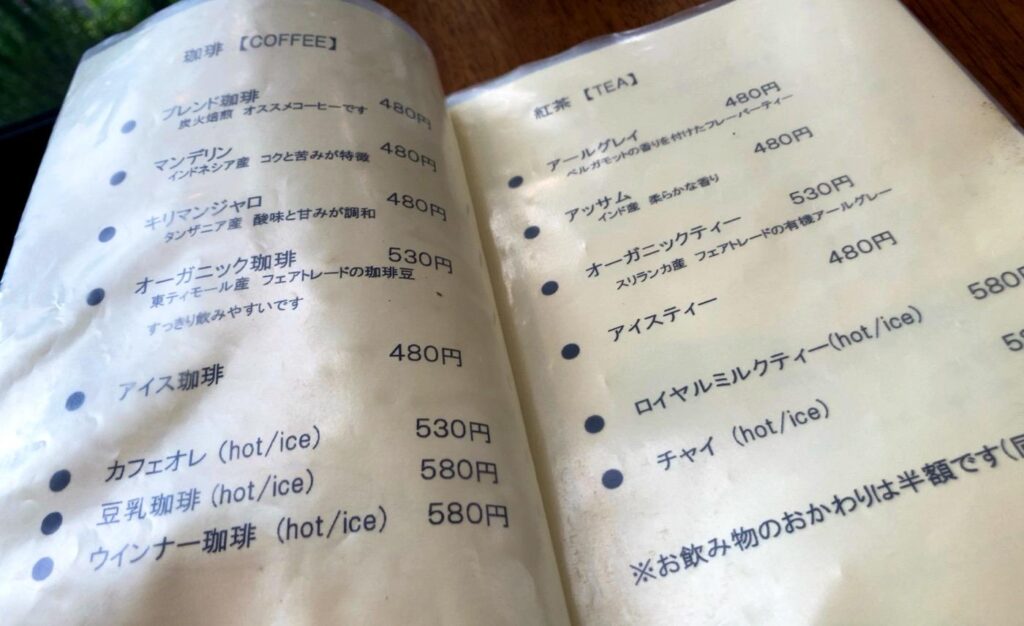 珈琲 【COFFEE】
● ブレンド珈琲 480円
炭火焙煎 オススメコーヒーです
● マンデリン 480円
インドネシア産 コクと苦みが特徴
● キリマンジャロ 480円
タンザニア産 酸味と甘みが調和
● オーガニック珈琲 530円
東ティモール産 フェアトレードの珈琲豆
すっきり飲みやすいです
● アイス珈琲 480円
● カフェオレ (hot/ice) 530円
● 豆乳珈琲 (hot/ice) 580円
● ウインナー珈琲 (hot/ice) 580円
紅茶 【TEA】
● アールグレイ 480円
ベルガモットの香りを付けたフレーバーティー
● アッサム 480円
インド産 柔らかな香り
● オーガニックティー 530円
スリランカ産 フェアトレードの有機アールグレー
● アイスティー 480円
● ロイヤルミルクティー(hot/ice) 580
● チャイ (hot/ice)
※お飲み物のおかわりは半額です(